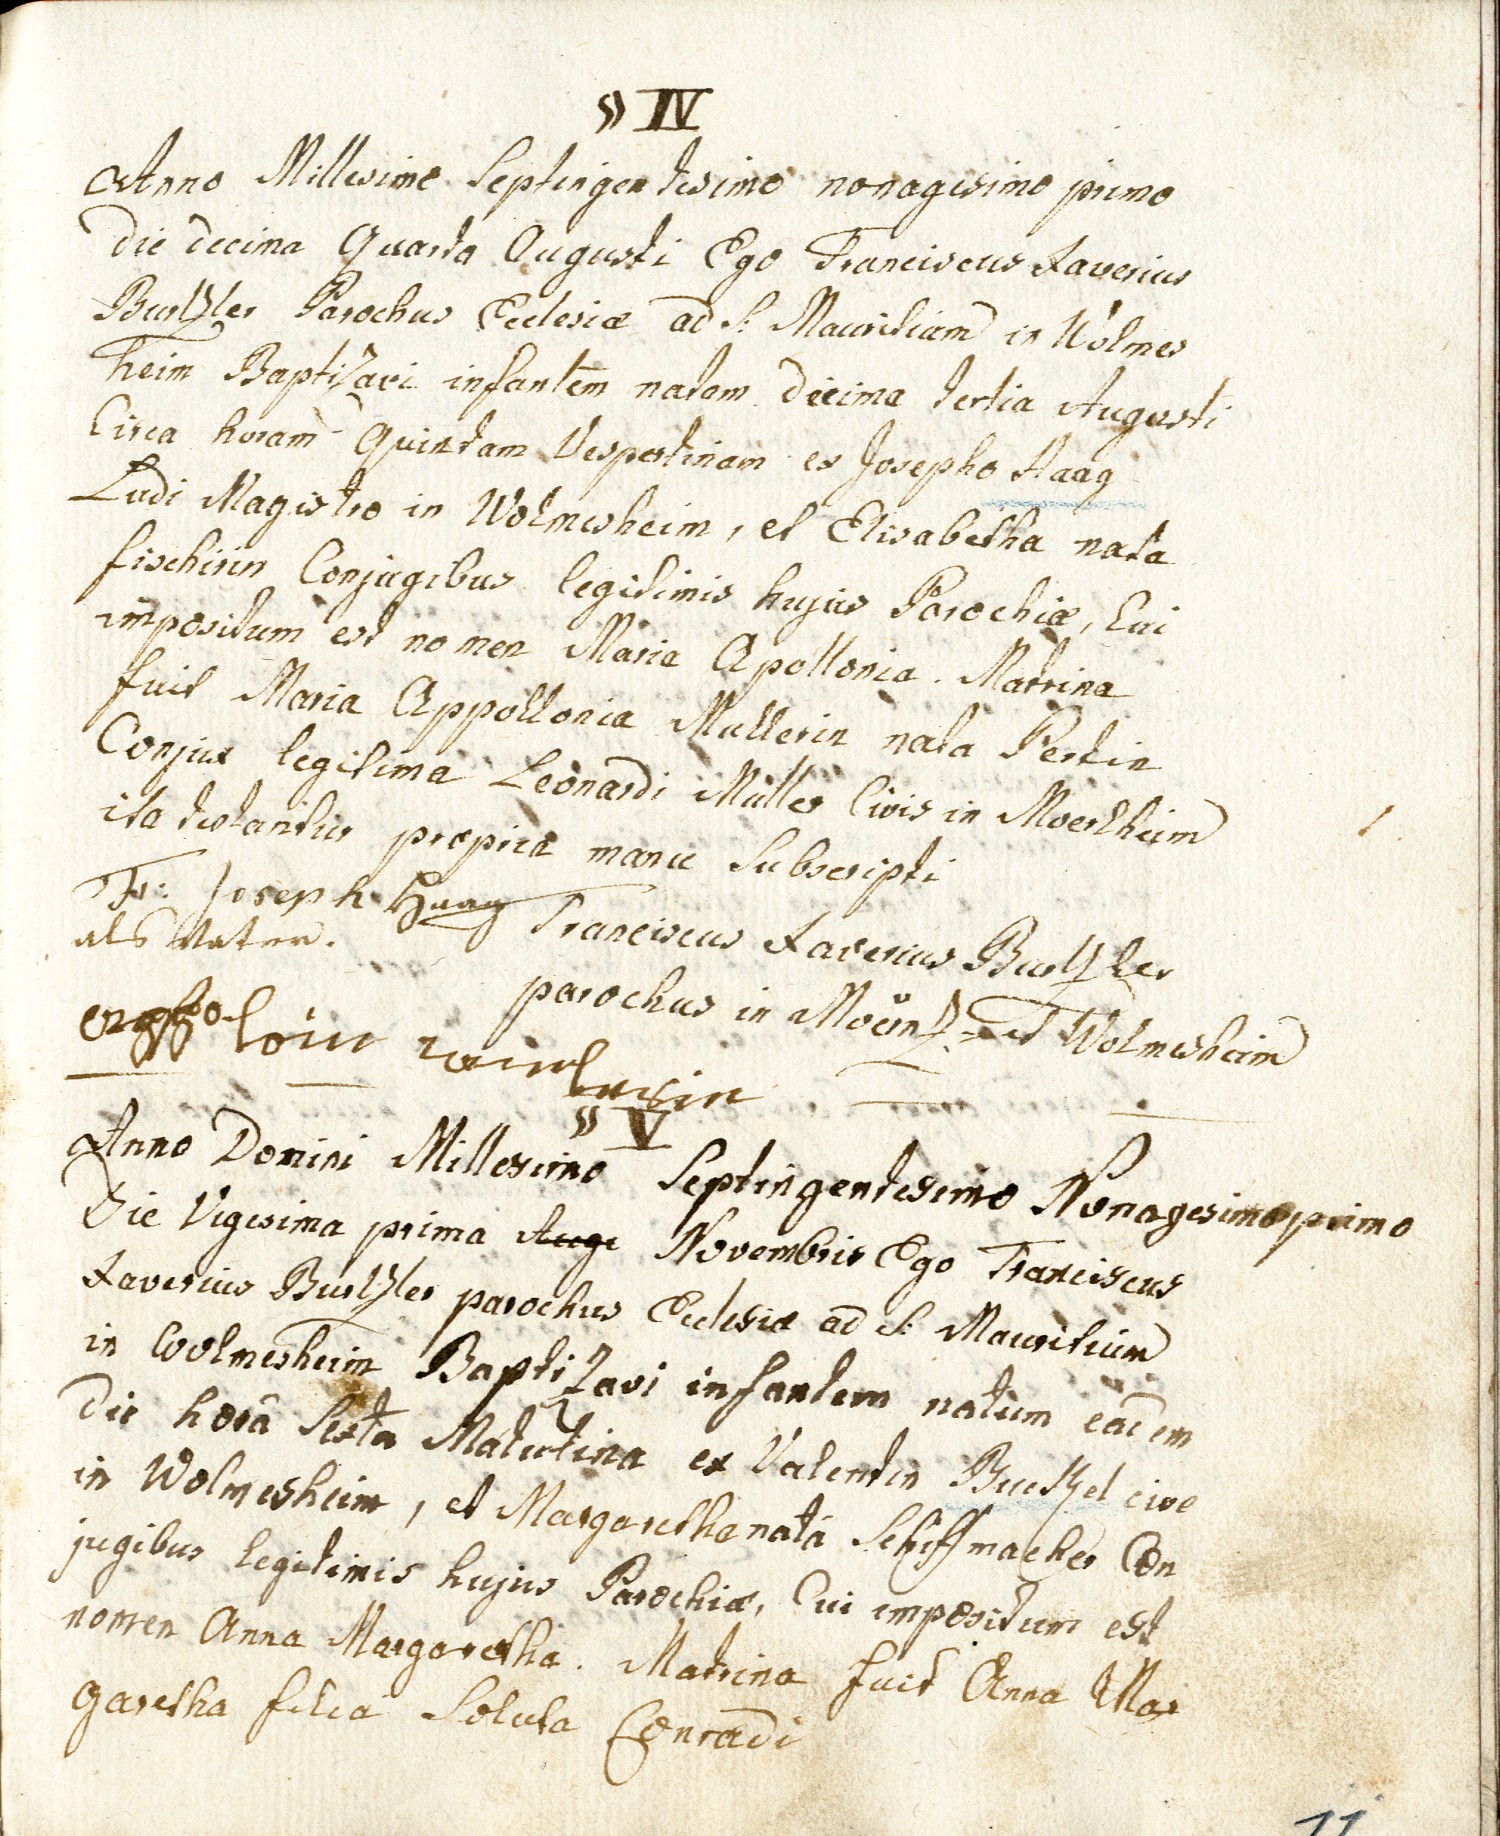 § IV
Anno Millesimo Septingentesimo nonagesimo primo
die decima Quarta Augusti Ego Franciscus Xaverius
Burtzler Parochus Ecclesiæ ad S: Mauritium in Wolmes
heim Baptizavi infantem natam decima tertia Augusti
Circa horam Quintam Vespertinam ex Josepho Haag
Ludi Magistro in Wolmesheim, et Elisabetha nata
fischerin Conjugibus legitimis hujus Parochiæ, Cui
impositum est nomen Maria Apollonia. Matrina
fuit Maria Appollonia Mullerin nata Pertin
Conjux legitima Leonardi Müller Civis in Moerlheim
ita testantur propria manu Subscripti
Fr: Joseph Haag Franciscus Xaverius Burtzler
als Vatter. parochus in Mörz- et Wolmesheim
§ V
Anno Domini Millesimo Septingentesimo Nonagesimo primo
Die Vigesima prima Aug: Novembris Ego Franciscus
Xaverius Burtzler parochus Ecclesiæ ad S: Mauritium
in Wolmesheim Baptizavi infantem natum eadem
die horâ Sexta Matutina ex Valentin Buetzel cive
in Wolmesheim, et Margaretha natâ Schiffmacher Con
jugibus legitimis hujus Parochiæ, Cui impositum est
nomen Anna Margaretha. Matrina fuit Anna Mar
garetha filia Soluta Conradi
11